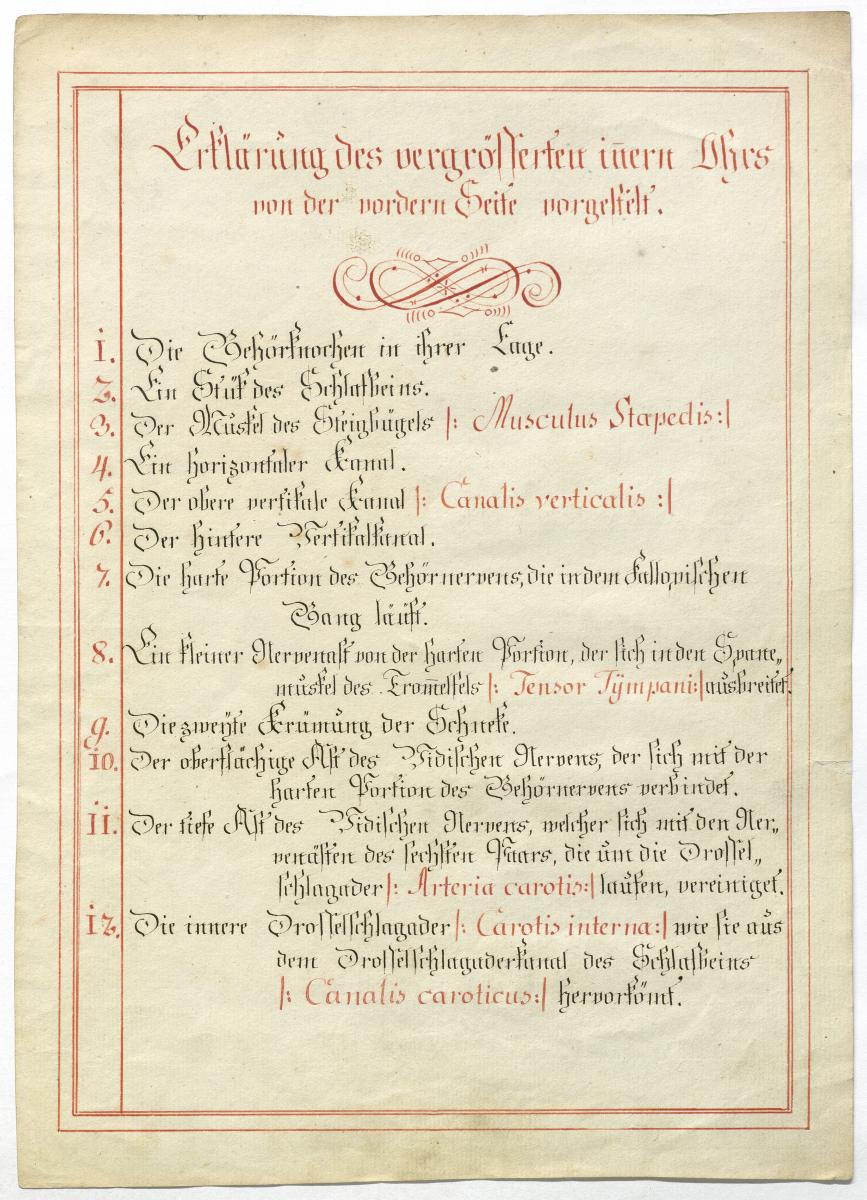 Erklärung des vergrösserten iñern Ohrs
von der vordern Seite vorgestelt.
1. Die Gehörknochen in ihrer Lage.
2. Ein Stük des Schlafbeins.
3. Der Muskel des Steigbügels |: Musculus Stapedis:|
4. Ein horizontaler Kanal.
5. Der obere vertikale Kanal |: Canalis verticalis :|
6. Der hintere Vertikalkanal.
7. Die harte Portion des Gehörnervens, die in dem Fallopischen
Gang läuft.
8. Ein kleiner Nervenast von der harten Portion, der sich in den Spane„
muskel des Trom̃elfels |: Tensor Tÿmpani:| ausbreitet.
9. Die zweyte Krümung der Schneke.
10. Der oberflächige Ast des Vidischen Nervens, der sich mit der
harten Portion des Gehörnervens verbindet.
11. Der tiefe Ast des Vidischen Nervens, welcher sich mit den Ner„
venästen des sechsten Paars, die um die Drossel„
schlagader |: Arteria carotis:| laufen, vereiniget.
12. Die innere Drosselschlagader |: Carotis interna:| wie sie aus
dem Drosselschlagaderkanal des Schlafbeins
|: Canalis caroticus:| hervorkömt.